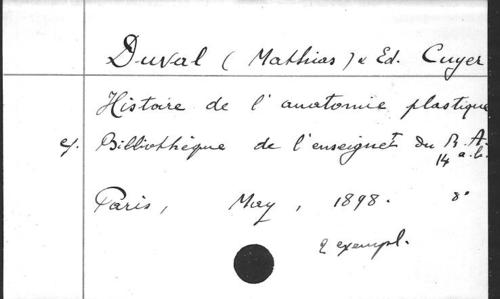 Duval (Mathias) & Ed. Cuyer
Histoire de l'anatomie plastique
Bibliothèque de l'enseignet du B. A.
14 a.b.
Paris, May, 1898. 8°
2 exempl.